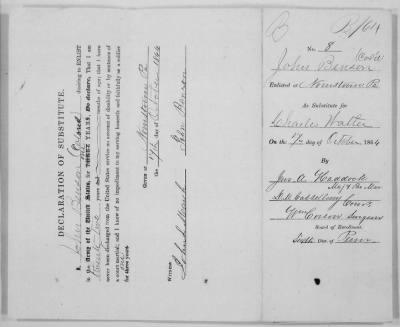 DECLARATION OF SUBSTITUTE.
I, John Benson (Colored) desiring to ENLIST
in the Army of the United States, for THREE YEARS, Do declare, That I am
twenty two years and months of age; that I have
never been discharged from the United States service on account of disability or by sentence of
a court martial; and I know of no impediment to my serving honestly and faithfully as a soldier
for three years.
one
GIVEN at Norristown Pa
the 17th day of October 1864
John Benson
WITNESS
B
No. 8
John Benson (Col'd)
Enlisted at Norristown Pa
As Substitute for
Charles Walter
On the day of October 1864
By
Jno. A. Haddock
Maj & Pro Mar
Com'r
Wm Corson Surgeon
Board of Enrollment.
Sixth Dist. of Penn